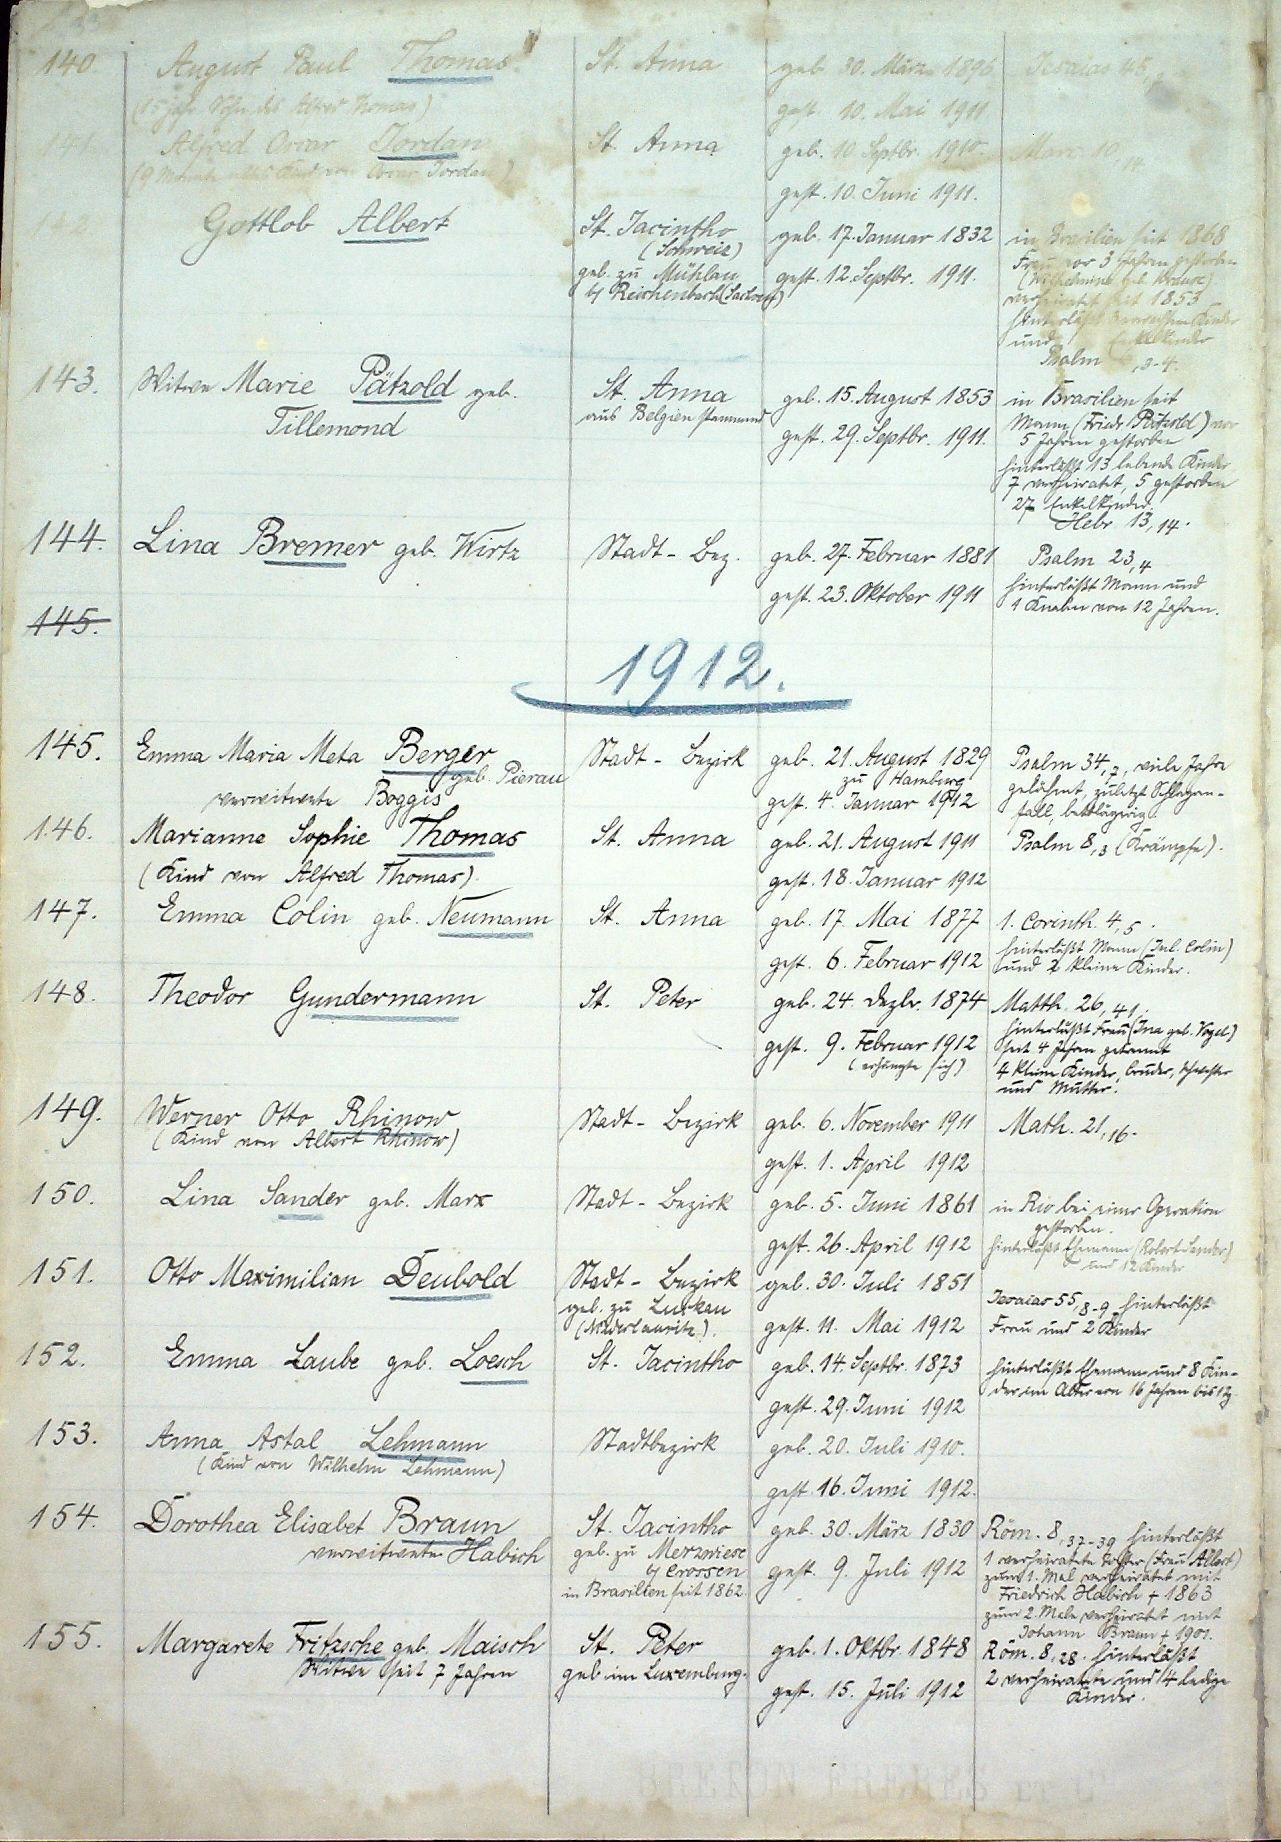 140. August Paul Thomas St. Anna geb. 30. März 1896 Jesaias
(15 jähr. Sohn des Alfred Thomas) gest. 10. Mai 1911
141. Alfred Oscar Jordan St. Anna geb. 10. Septbr. 1910. Marc. 10, 14
(9 Monate altes Kind von Oscar Jordan) gest. 10. Juni 1911.
142. Gottlob Albert St. Jacintho geb. 17. Januar 1832 in Brasilien seit 1868
(Schweiz) Frau vor 3 Jahren gestorben
geb. zu Mühlau gest. 12. Septbr. 1911. (Wilhelmine geb. Krause)
b/ Reichenbach (Sachsen) verheiratet seit 1853
hinterläßt Kinder
und Enkelkinder
Psalm , 3-4.
143. Witwe Marie Pätzold geb. St. Anna geb. 15. August 1853 in Brasilien seit
Tillemond aus Belgien stammend gest. 29. Septbr. 1911. Mann (Friedr. Pätzold) vor
5 Jahren gestorben
hinterläßt 13 lebende Kinder
7 verheiratet, 5 gestorben
27 Enkelkinder.
Hebr 13, 14.
144. Lina Bremer geb. Wirtz Stadt-Bez. geb. 27. Februar 1881 Psalm 23, 4
gest. 23. Oktober 1911 hinterläßt Mann und
1 Knaben von 12 Jahren.
145.
1912.
145. Emma Maria Meta Berger Stadt-Bezirk geb. 21. August 1829 Psalm 34, 7, viele Jahre
geb. Pierau zu Hamburg gelähmt, zuletzt Schlagan-
verwitwete Boggis gest. 4. Januar 1912 fall, bettlägerig.
146. Marianne Sophie Thomas St. Anna geb. 21. August 1911 Psalm 8, 3 (Krämpfe).
(Kind von Alfred Thomas) gest. 18. Januar 1912
147. Emma Colin geb. Neumann St. Anna geb. 17. Mai 1877 1. Corinth. 4, 5.
gest. 6. Februar 1912 hinterläßt Mann (Jul. Colin)
und 2 kleine Kinder.
148. Theodor Gundermann St. Peter geb. 24. Dezbr. 1874 Matth. 26, 41.
gest. 9. Februar 1912 hinterläßt Frau (Ina geb. Vogel)
(erhängte sich) seit 4 Jahren getrennt
4 kleine Kinder, Bruder, Schwester
und Mutter.
149. Werner Otto Rhinow Stadt-Bezirk geb. 6. November 1911 Math. 21, 16.
(Kind von Albert Rhinow) gest. 1. April 1912
150. Lina Sander geb. Marx Stadt-Bezirk geb. 5. Juni 1861 in Rio bei einer Operation
gestorben.
gest. 26. April 1912 hinterläßt Ehemann (Robert Sander)
und 12 Kinder
151. Otto Maximilian Deubold Stadt-Bezirk geb. 30. Juli 1851 Jesaias 55, 8-9 hinterläßt
geb. zu Luckau Frau und 2 Kinder
(Niederlausitz). gest. 11. Mai 1912
152. Emma Laube geb. Loesch St. Jacintho geb. 14. Septbr. 1873 hinterläßt Ehemann und 8 Kin-
gest. 29. Juni 1912 der im Alter von 16 Jahren bis
153. Anna Astal Lehmann Stadtbezirk geb. 20. Juli 1910.
(Kind von Wilhelm Lehmann) gest. 16. Juni 1912.
154. Dorothea Elisabet Braun St. Jacintho geb. 30. März 1830 Röm. 8, 37-39 hinterläßt
verwitwete Habich geb. zu Merzwiese 1 verheiratete Tochter (Frau Albert)
b/ Crossen gest. 9. Juli 1912 zum 1. Mal verheiratet mit
in Brasilien seit 1862. Friedrich Habich + 1863
zum 2. Male verheiratet mit
Johann Braun + 1901.
155. Margarete Fritzsche geb. Maisch St. Peter geb. 1. Oktbr. 1848 Röm. 8, 28. hinterläßt
Witwe seit 7 Jahren geb. im Luxemburg. gest. 15. Juli 1912 2 verheiratete und 4 ledige
Kinder.